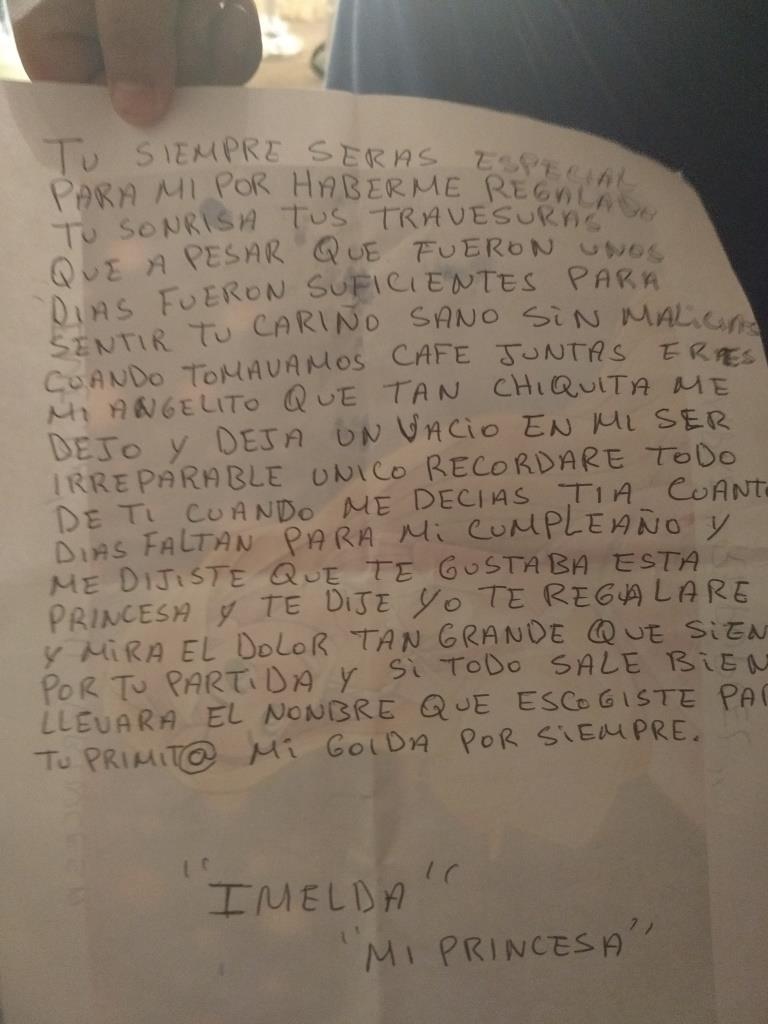 TU SIEMPRE SERAS ESPECIAL
PARA MI POR HABERME REGALADO
TU SONRISA TUS TRAVESURAS
QUE A PESAR QUE FUERON UNOS
DIAS FUERON SUFICIENTES PARA
SENTIR TU CARIÑO SANO SIN MALICIAS
CUANDO TOMAVAMOS CAFE JUNTAS ERES
MI ANGELITO QUE TAN CHIQUITA ME
DEJO Y DEJA UN VACIO EN MI SER
IRREPARABLE UNICO RECORDARE TODO
DE TI CUANDO ME DECIAS TIA CUANTO
DIAS FALTAN PARA MI CUMPLEAÑO Y
ME DIJISTE QUE TE GUSTABA ESTA
PRINCESA Y TE DIJE YO TE REGALARE
Y MIRA EL DOLOR TAN GRANDE QUE SIEN
POR TU PARTIDA Y SI TODO SALE BIEN
LLEVARA EL NONBRE QUE ESCOGISTE PAR
TU PRIMIT@ MI GOIDA POR SIEMPRE.
"IMELDA"
"MI PRINCESA"